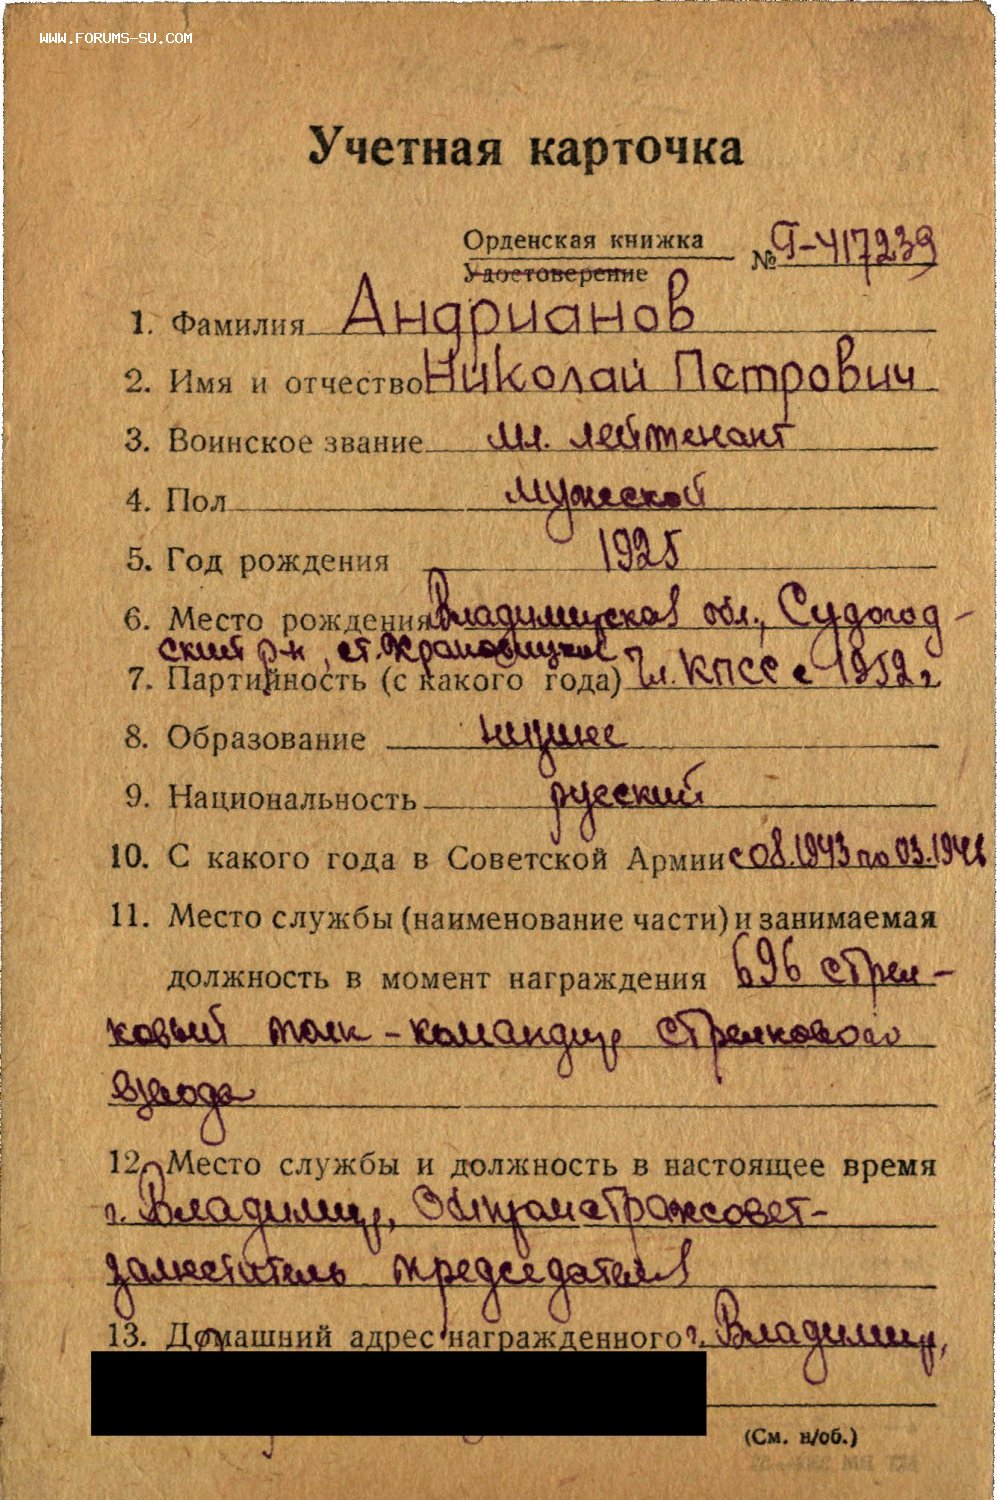 WWW.FORUMS-SU.COM
Учетная карточка
Орденская книжка
Удостоверение
№ Г-417239
1. Фамилия Андрианов
2. Имя и отчество Николай Петрович
3. Воинское звание мл. лейтенант
4. Пол мужской
5. Год рождения 1925
6. Место рождения Владимирская обл., Судогод-
ский р-н, ст.
7. Партийность (с какого года) Чл. КПСС с 1952 г
8. Образование высшее
9. Национальность русский
10. С какого года в Советской Армии с 08.1943 по 03.1946
11. Место службы (наименование части) и занимаемая
должность в момент награждения 696 стрел-
ковый полк - командир стрелкового
взвода
12. Место службы и должность в настоящее время
г. Владимир, Облпромстрахсовет-
заместитель председателя
13. Домашний адрес награжденного г. Владимир,
(См. н/об.)